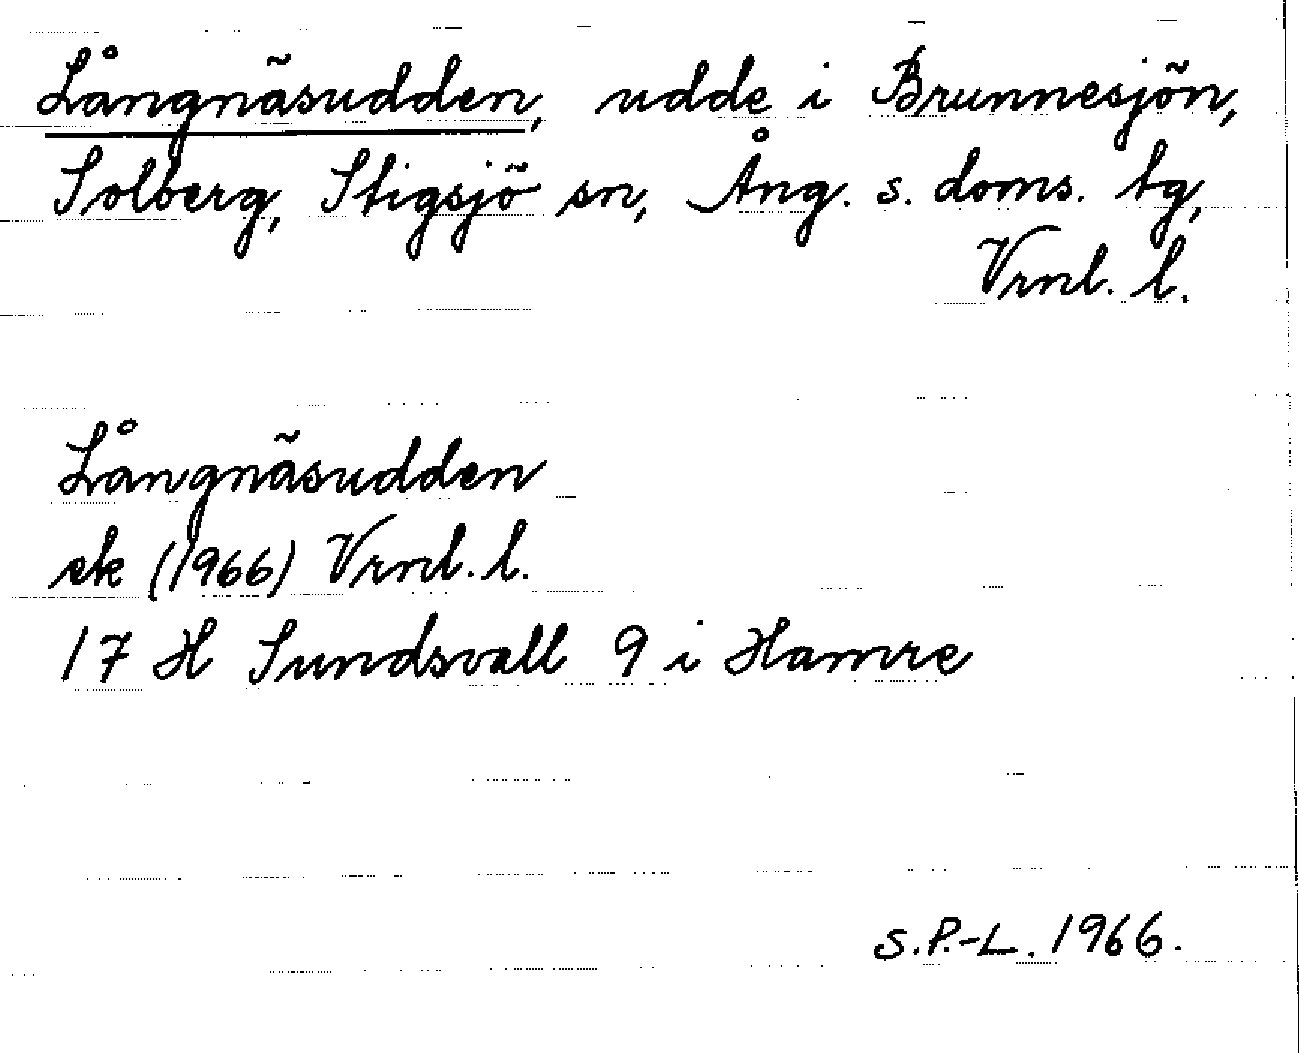 Långnäsudden, udde i Brunnesjön,
Solberg, Stigsjö sn, Ång. s. doms. tg,
Vrnl. l.
Långnäsudden
ek (1966) Vrnl. l.
17 H Sundsvall 9 i Hamre
S.P.-L. 1966.